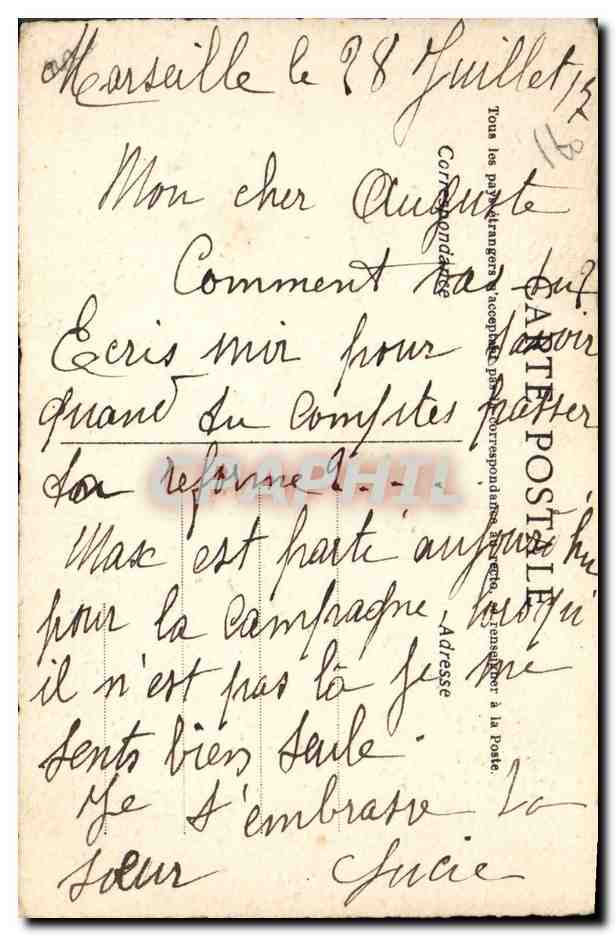 Marseille le 28 Juillet 17
160
Mon cher Auguste
Comment vas-tu?
Ecris moi pour savoir
quand tu comptes passer
ta reforme? ...
Max est parti aujourd'hui
pour la campagne, lorsqu'
il n'est pas là je me
sents bien seule.
Je t'embrasse ta
sœur Lucie
CARTE POSTALE
Tous les pays étrangers n'acceptent pas la correspondance au recto, se renseigner à la Poste.
Correspondance
Adresse
CPAPHIL